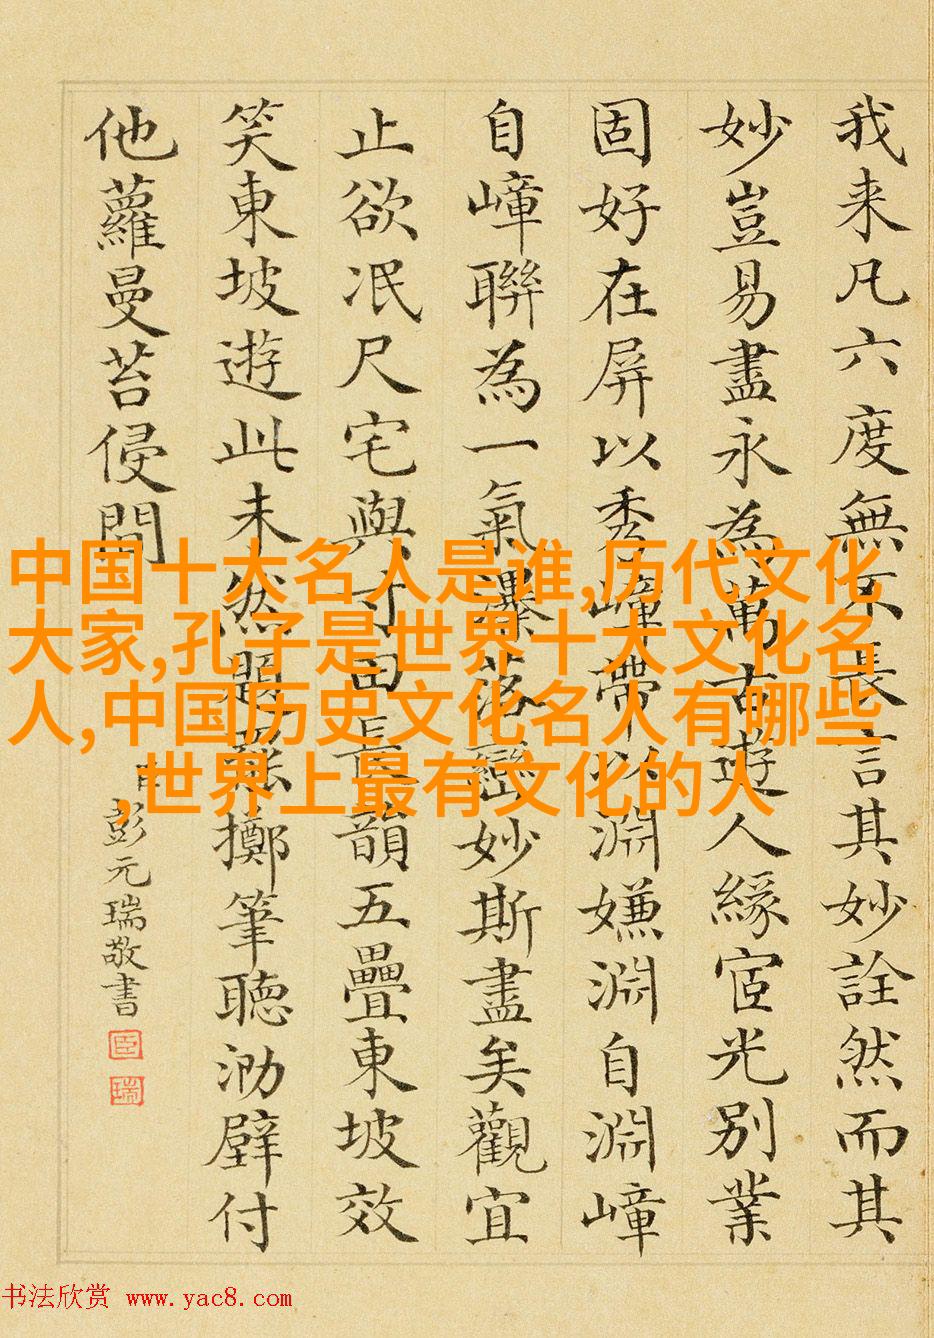 我来凡六度無不長言其妙詮然而其
妙豈易盡永為萬古遊人緣宦光別業
固好在屏以秀嶂帶以淵嫌淵自淵嶂
自嶂聯為一氣瀑落巒妙斯盡矣觀宜
止欲冺尺宅與寸田長韻五疊東坡效
笑東坡遊此未然題罷擲筆聽泐壁付
他蘿曼苔侵間
臣彭元瑞敬書
臣
瑞
中国十大名人是谁,历代文化
大家,孔子是世界十大文化名
人,中国历史文化名人有哪些
,世界上最有文化的人
书法欣赏 www.yac8.com